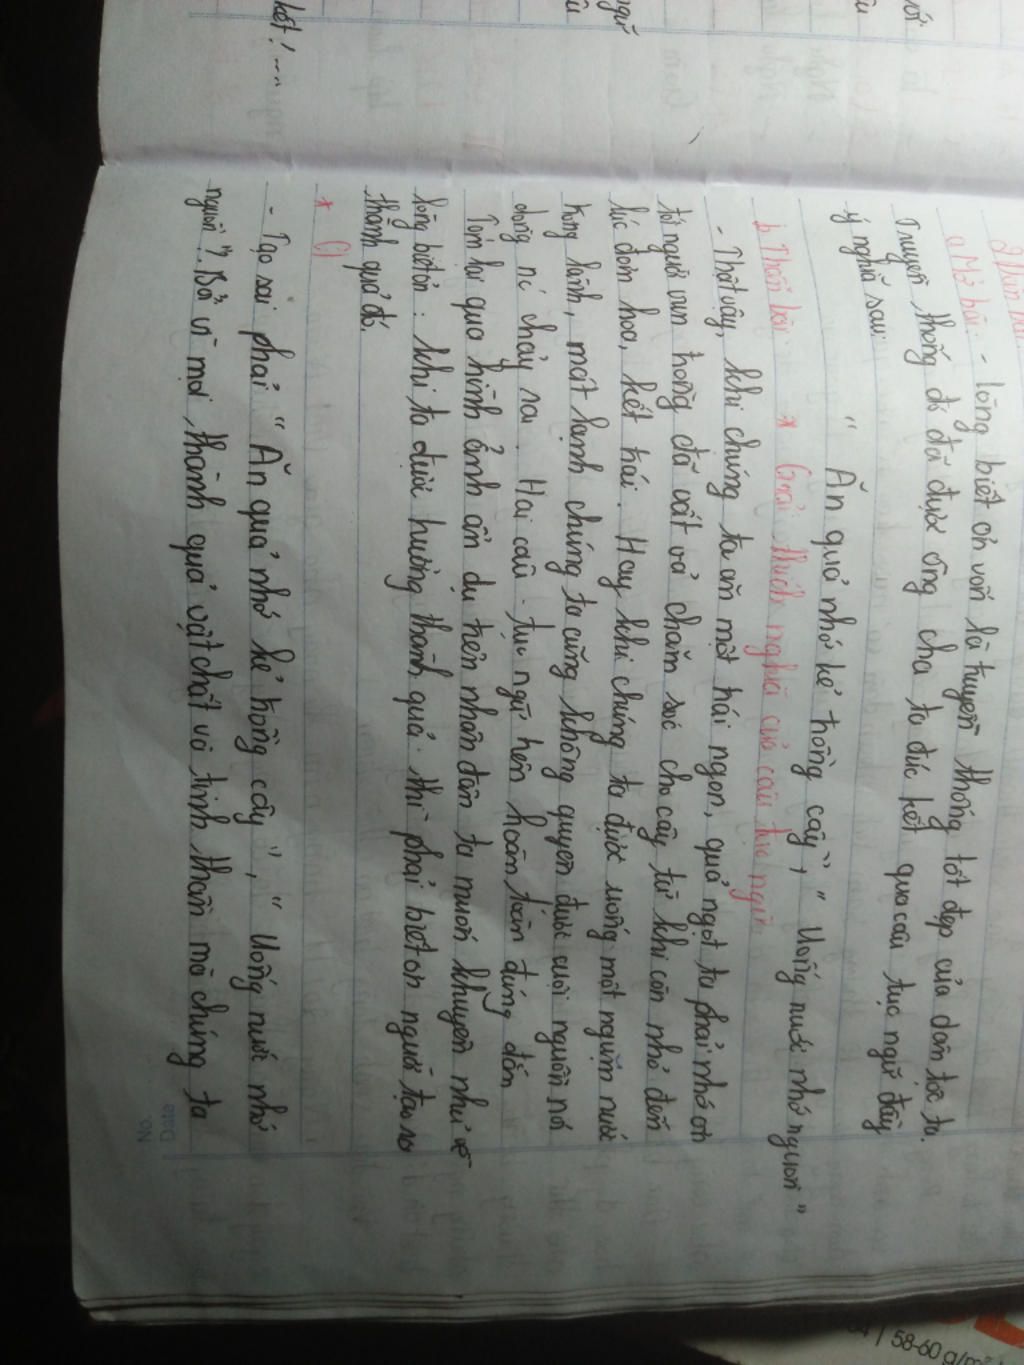 a. Mở bài: - lòng biết ơn vốn là truyền thống tốt đẹp của dân tộc ta.
Truyền thống đó đã được ông cha ta đúc kết qua câu tục ngữ đầy
ý nghĩa sau:
" Ăn quả nhớ kẻ trồng cây", " Uống nước nhớ nguồn"
b. Thân bài: * Giải thích nghĩa của câu tục ngữ.
- Thật vậy, khi chúng ta ăn một trái ngon, quả ngọt ta phải nhớ ơn
tới người vun trồng đã vất vả chăm sóc cho cây từ khi còn nhỏ đến
lúc đơm hoa, kết trái. Hay khi chúng ta được uống một ngụm nước
trong lành, mát lạnh chúng ta cũng không quyên được cuội nguồn nơi
dòng nước chảy ra. Hai câu tục ngữ trên hoàn toàn đúng đắn
Tóm lại qua hình ảnh ẩn dụ trên nhân dân ta muốn khuyên nhủ về
lòng biết ơn: khi ta được hưởng thành quả thì phải biết ơn người tạo ra
thành quả đó.
*
- Tạo sai phải " Ăn quả nhớ kẻ trồng cây", " Uống nước nhớ
nguồn"? Bởi vì mọi thành quả vật chất và tinh thần mà chúng ta
kết!...
ngữ
No.
Date
58-60 g/m²